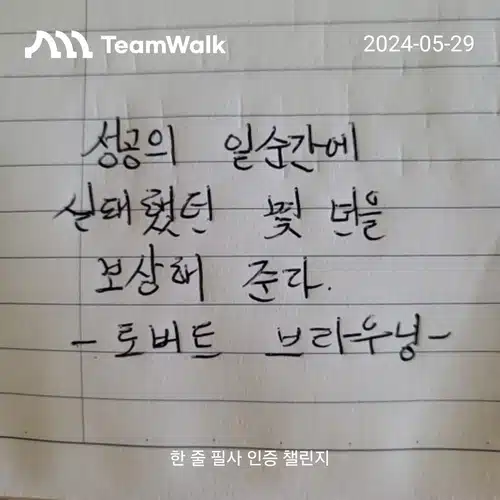 TeamWalk
2024-05-29
성공의 일순간에
실패했던 몇 년을
보상해 준다.
- 로버트 브라우닝 -
한 줄 필사 인증 챌린지